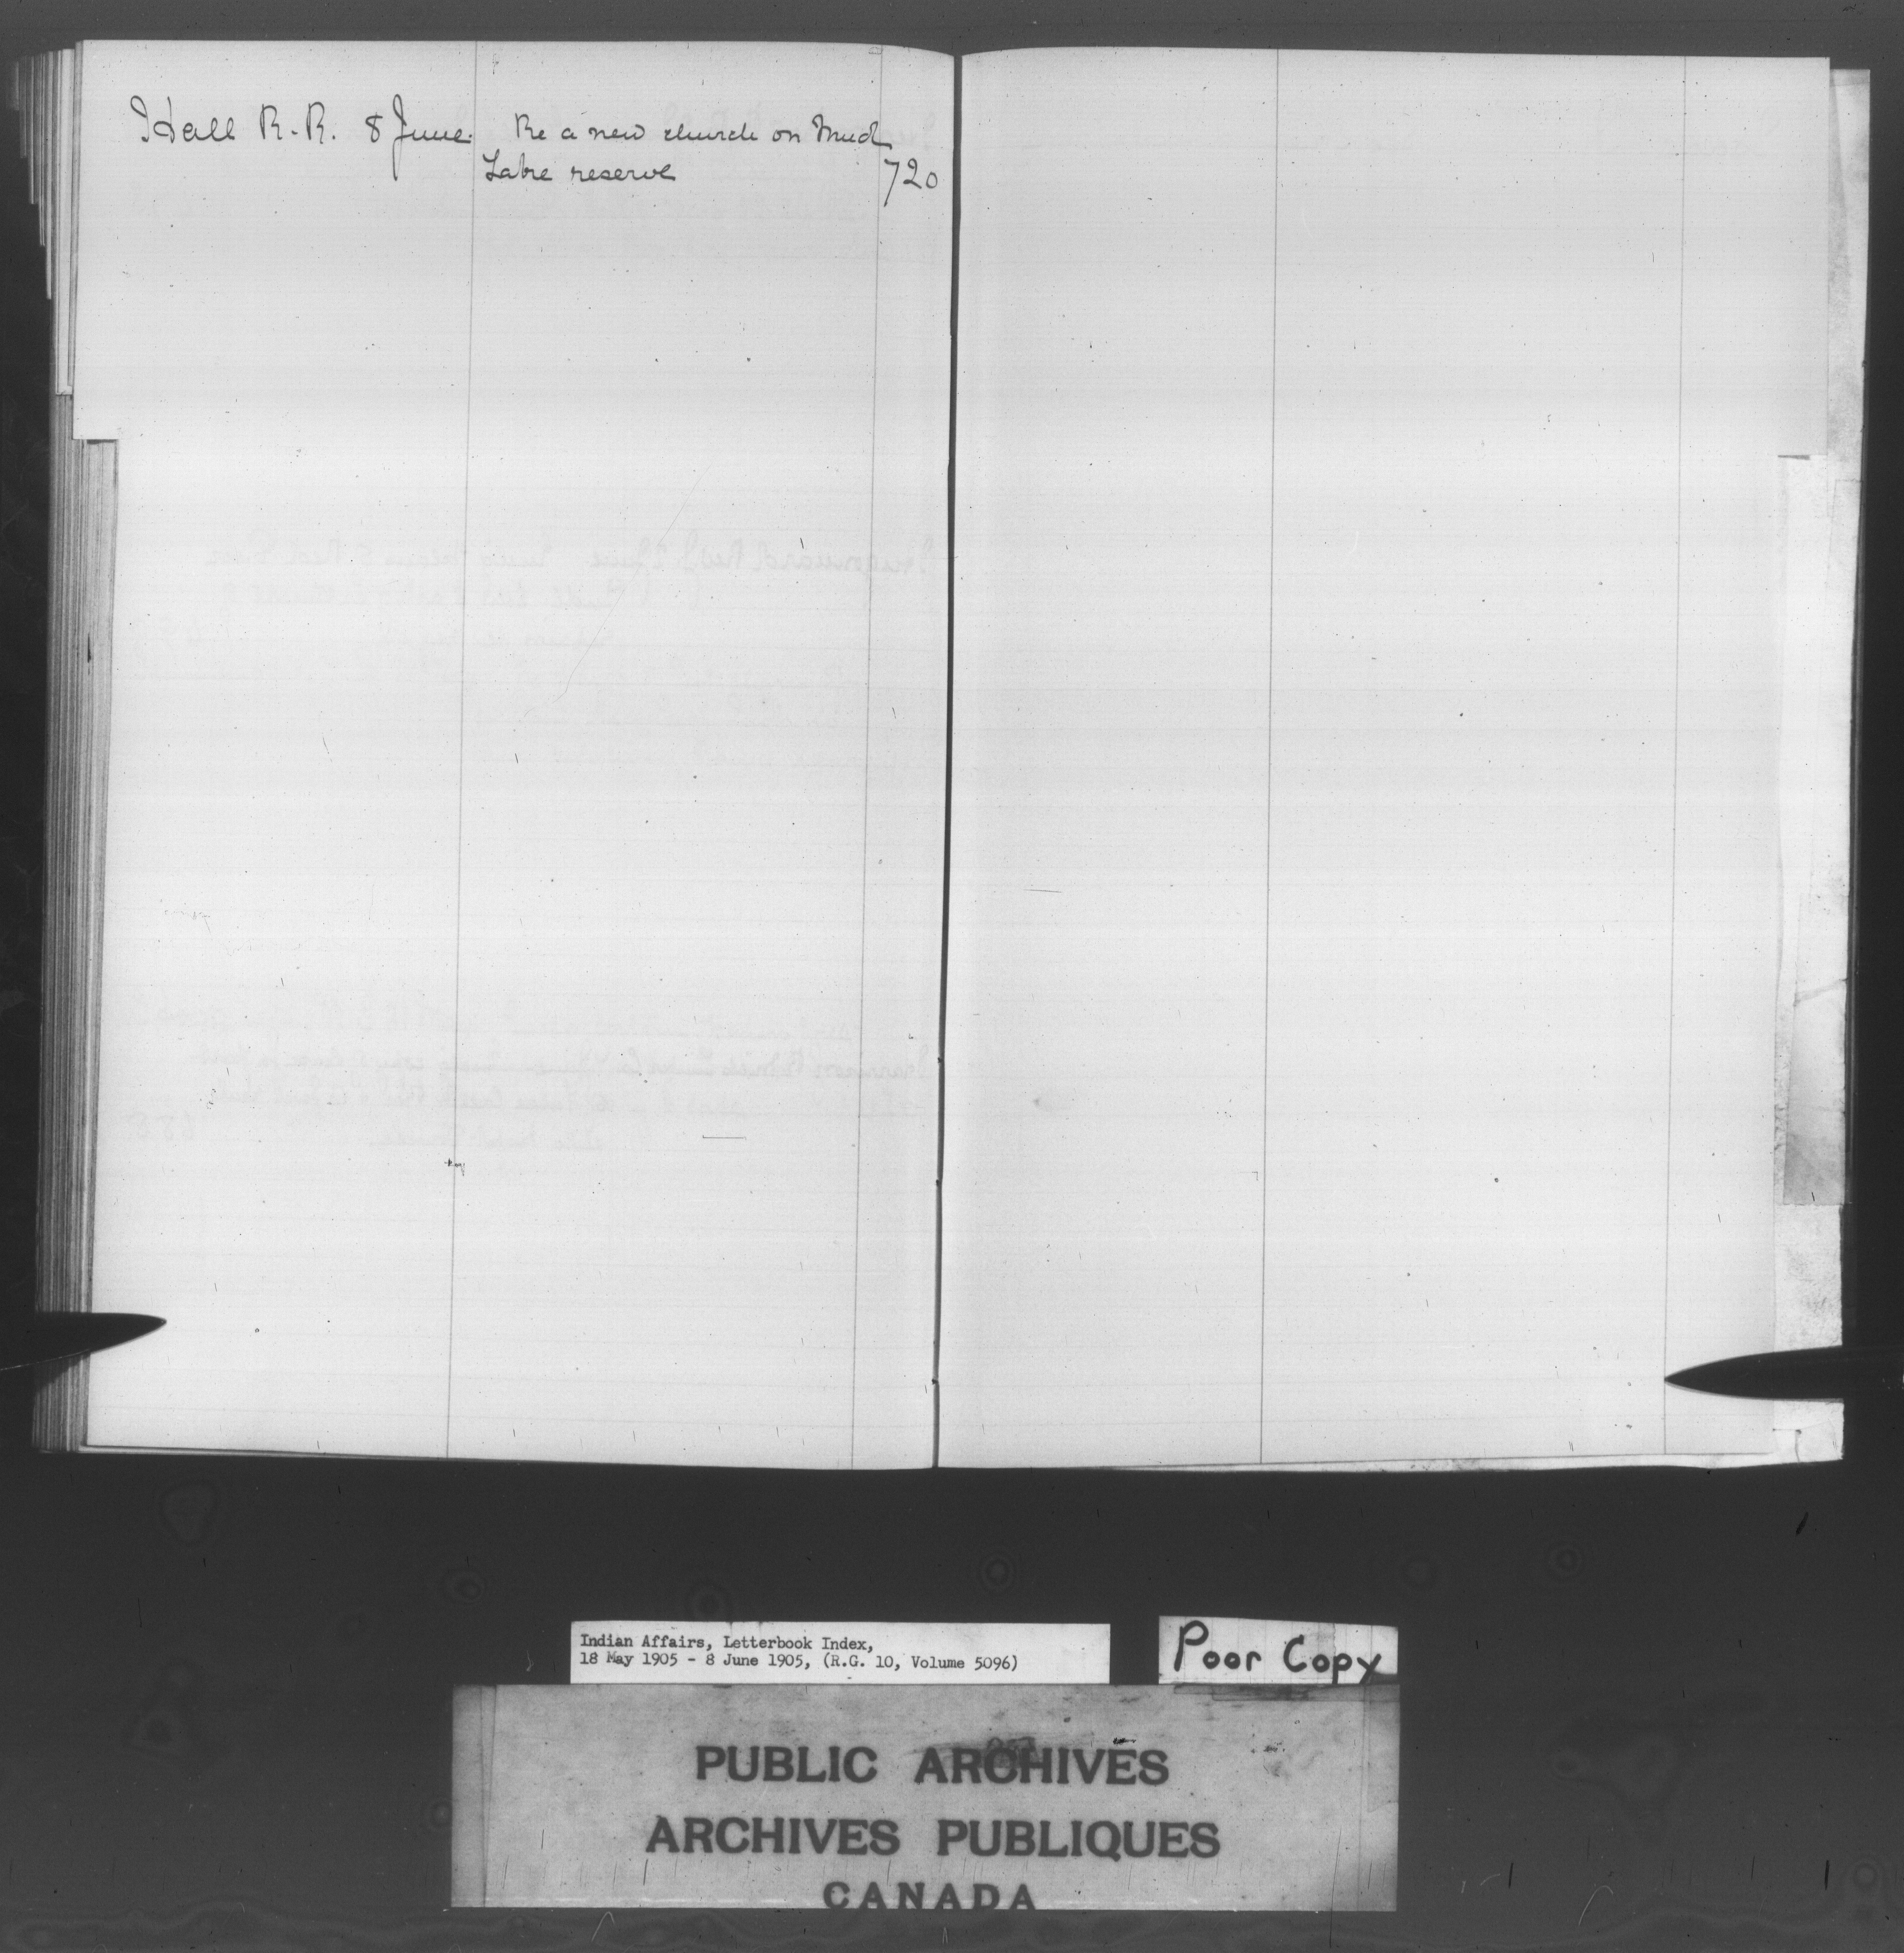 Hall R. R. 8 June. Re a new church on Mud
Lake reserve 720
Indian Affairs, Letterbook Index,
18 May 1905 - 8 June 1905, (R.G. 10, Volume 5096)
Poor Copy
PUBLIC ARCHIVES
ARCHIVES PUBLIQUES
CANADA